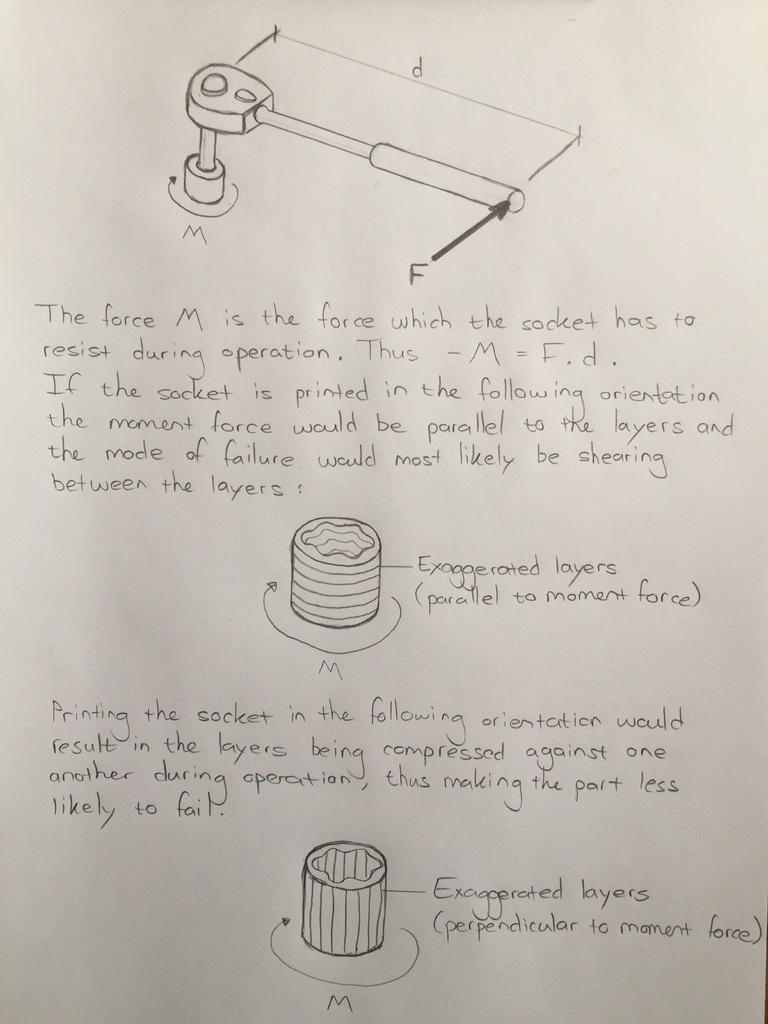 d
M
F
The force M is the force which the socket has to
resist during operation. Thus - M = F. d.
If the socket is printed in the following orientation
the moment force would be parallel to the layers and
the mode of failure would most likely be shearing
between the layers :
Exaggerated layers
(parallel to moment force)
M
Printing the socket in the following orientation would
result in the layers being compressed against one
another during operation, thus making the part less
likely to fail.
Exaggerated layers
(perpendicular to moment force)
M